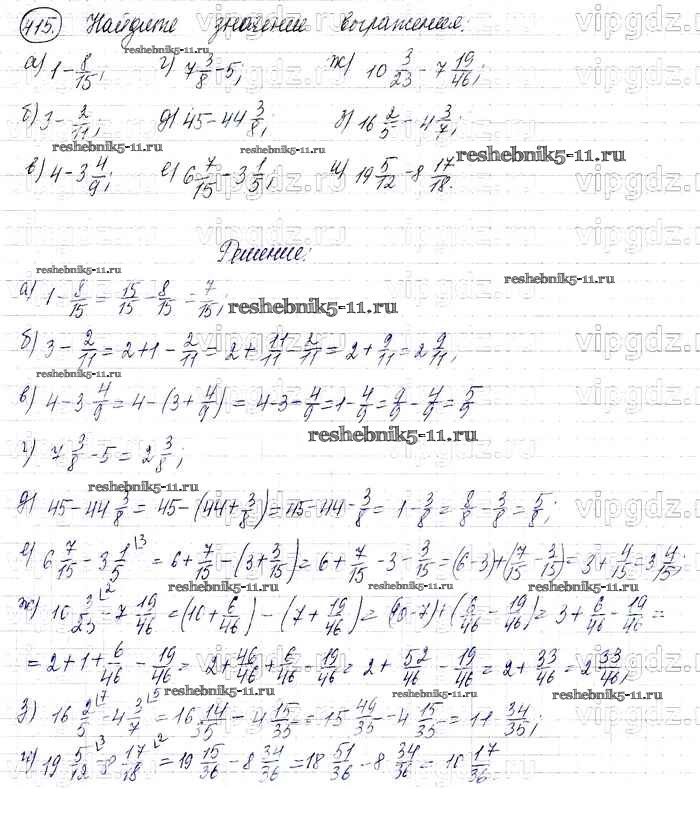 415. Найдите значение выражения:
а) 1 - 8/15; г) 7 3/8 - 5; ж) 10 3/23 - 7 19/46;
б) 3 - 2/11; д) 45 - 44 3/8; з) 16 2/5 - 4 3/7;
в) 4 - 3 4/9; е) 6 7/15 - 3 1/5; и) 19 5/12 - 8 17/18.
Решение:
а) 1 - 8/15 = 15/15 - 8/15 = 7/15;
б) 3 - 2/11 = 2 + 1 - 2/11 = 2 + 11/11 - 2/11 = 2 + 9/11 = 2 9/11;
в) 4 - 3 4/9 = 4 - (3 + 4/9) = 4 - 3 - 4/9 = 1 - 4/9 = 9/9 - 4/9 = 5/9
г) 7 3/8 - 5 = 2 3/8;
д) 45 - 44 3/8 = 45 - (44 + 3/8) = 45 - 44 - 3/8 = 1 - 3/8 = 8/8 - 3/8 = 5/8;
е) 6 7/15 - 3 1/5 ⌊3 = 6 + 7/15 - (3 + 3/15) = 6 + 7/15 - 3 - 3/15 = (6 - 3) + (7/15 - 3/15) = 3 + 4/15 = 3 4/15;
ж) 10 3/23 ⌊2 - 7 19/46 = (10 + 6/46) - (7 + 19/46) = (10 - 7) + (6/46 - 19/46) = 3 + 6/46 - 19/46 =
= 2 + 1 + 6/46 - 19/46 = 2 + 46/46 + 6/46 - 19/46 = 2 + 52/46 - 19/46 = 2 + 33/46 = 2 33/46;
з) 16 2/5 ⌊7 - 4 3/7 ⌊5 = 16 14/35 - 4 15/35 = 15 49/35 - 4 15/35 = 11 34/35;
и) 19 5/12 ⌊3 - 8 17/18 ⌊2 = 19 15/36 - 8 34/36 = 18 51/36 - 8 34/36 = 10 17/36.
reshebnik5-11.ru
vipgdz.ru